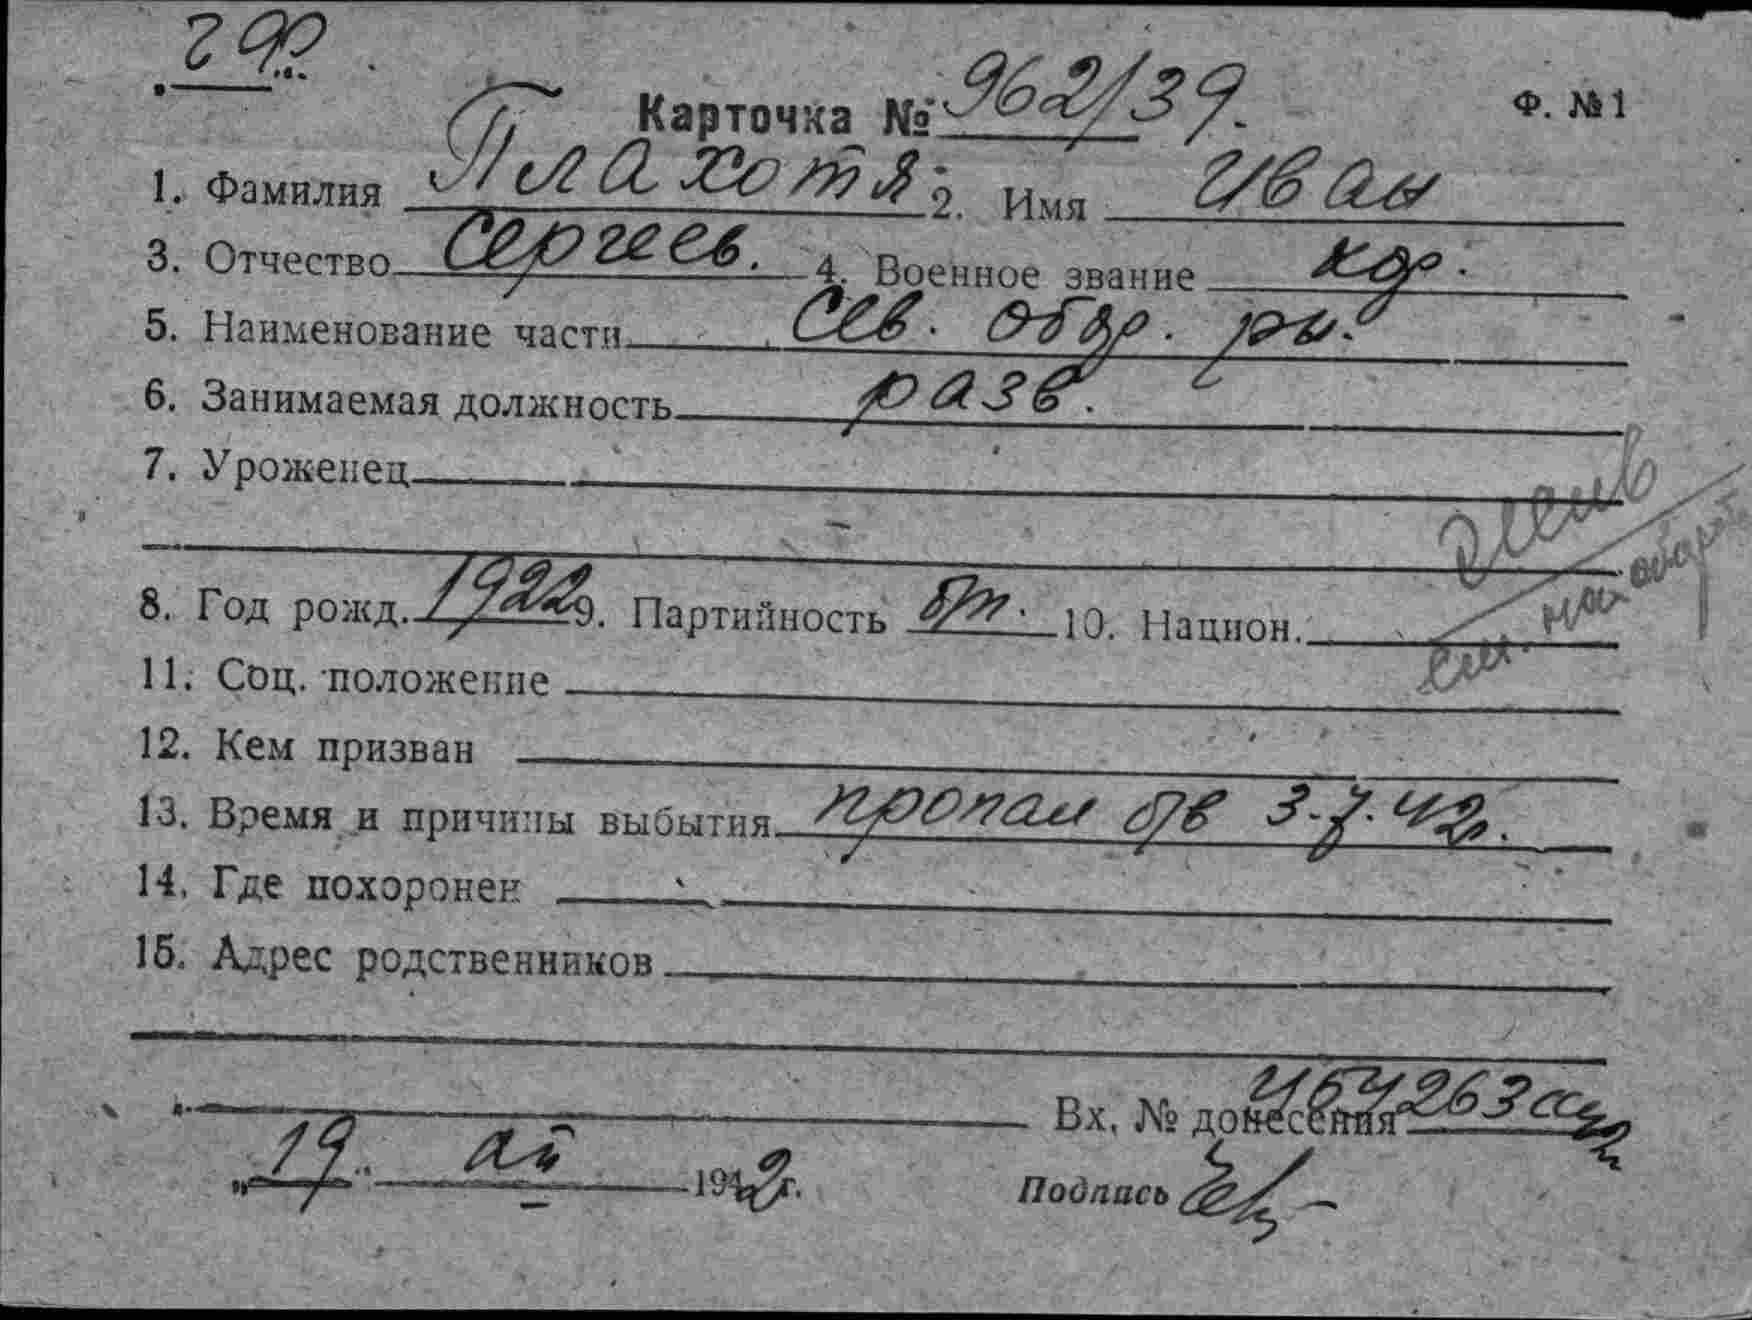 Карточка № 962/39. Ф. №1
1. Фамилия Плахотя 2. Имя Иван
3. Отчество Сергеев. 4. Военное звание кр.
5. Наименование части Сев. обор. рн.
6. Занимаемая должность разв.
7. Уроженец
8. Год рожд. 1922 9. Партийность б/п. 10. Национ.
11. Соц. положение
12. Кем призван
13. Время и причины выбытия пропал б/в 3.7.42г.
14. Где похоронен
15. Адрес родственников
Вх. № донесения
„19“ 1942г. Подпись